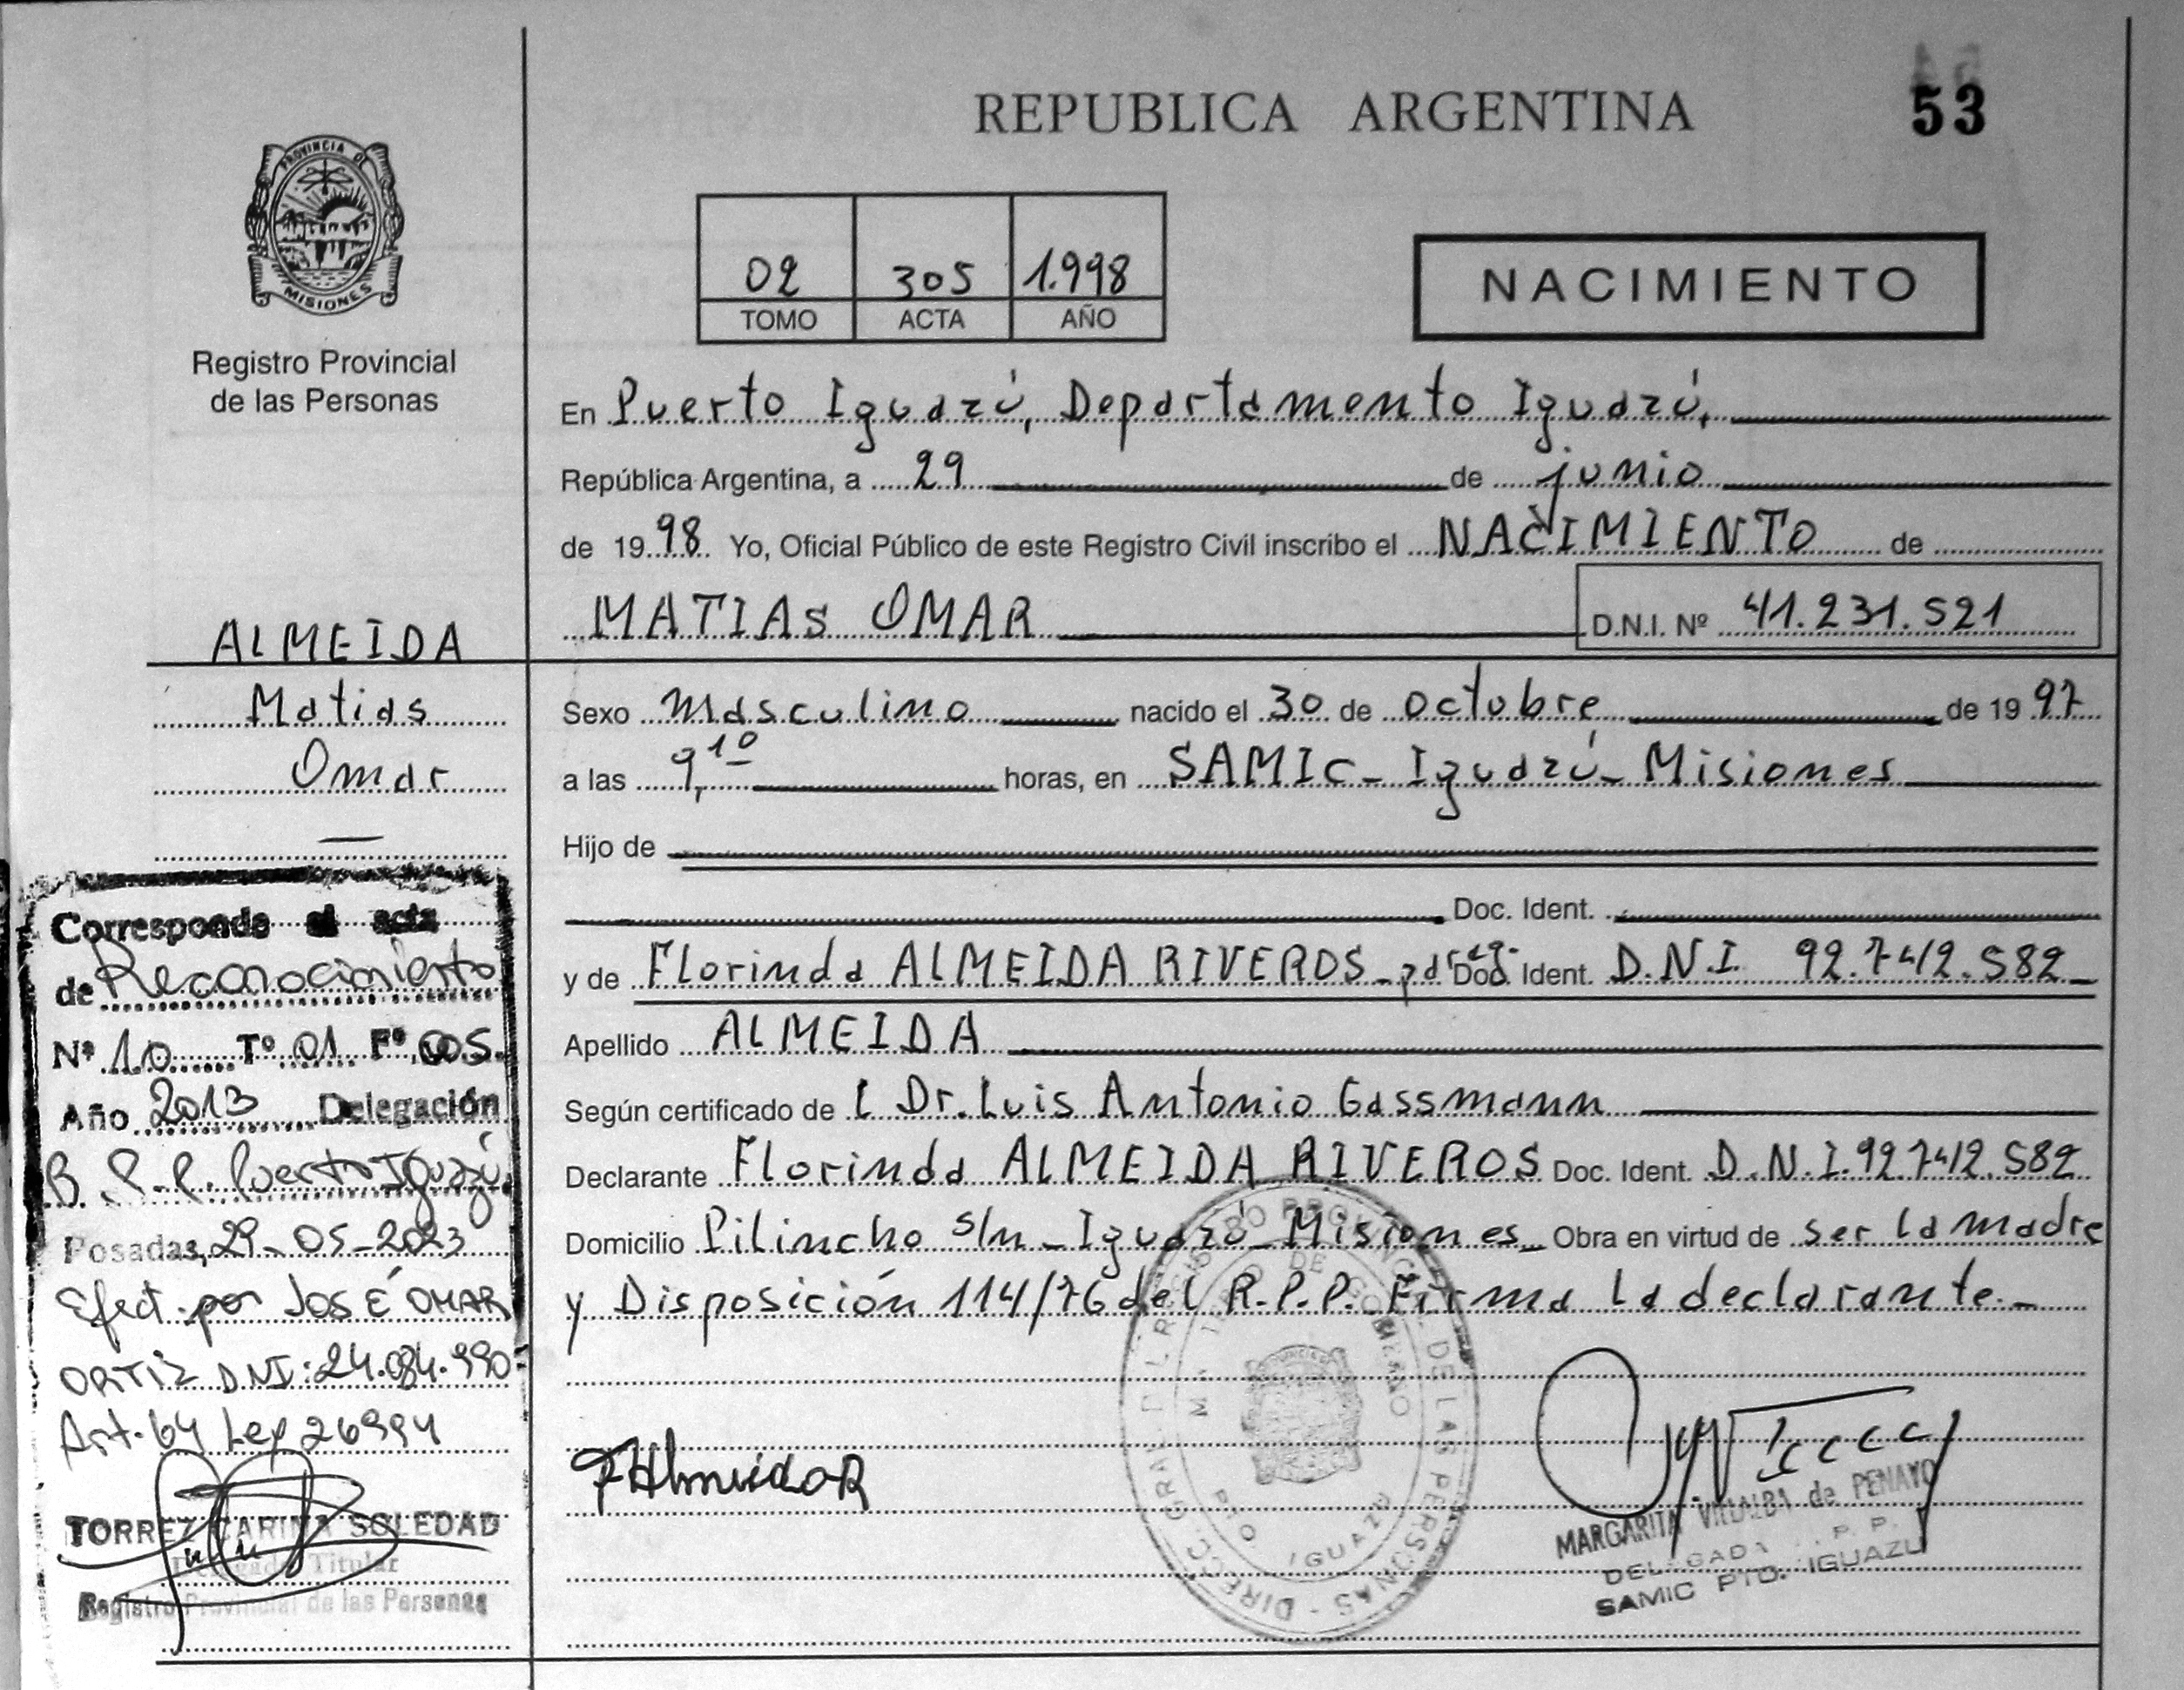 REPUBLICA ARGENTINA
53
PROVINCIA DE
MISIONES
Registro Provincial
de las Personas
02 305 1.998
TOMO ACTA AÑO
NACIMIENTO
En Puerto Iguazú, Departamento Iguazú,
República Argentina, a 29 de junio
de 1998 Yo, Oficial Público de este Registro Civil inscribo el NACIMIENTO de
MATIAS OMAR D.N.I. Nº 41.231.521
ALMEIDA
Matias
Omar
Sexo Masculino nacido el 30 de octubre de 1997
a las 9,10 horas, en SAMIC_ Iguazú_ Misiones
Hijo de
Doc. Ident.
y de Florinda ALMEIDA RIVEROS_ parag. Doc. Ident. D.N.I. 92.742.582_
Apellido ALMEIDA
Según certificado de l Dr. Luis Antonio Gassmann
Declarante Florinda ALMEIDA RIVEROS Doc. Ident. D.N.I. 92.742.582
Domicilio Pilincho s/n_ Iguazú_ Misiones_ Obra en virtud de ser la madre
y Disposición 114/76 del R.P.P. Firma la declarante._
Corresponde al acta
de Reconocimiento
Nº 10 Tº 01 Fº 005.
Año 2013 Delegación
R.P.P. Puerto Iguazú
Posadas, 29-05-2023
Efect. por JOSÉ OMAR
ORTIZ DNI: 24.084.990
Art. 64 Ley 26994
TORREZ CARINA SOLEDAD
Delegada Titular
Registro Provincial de las Personas
FAlmeidaR
DIREC. GRAL. DEL REGISTRO PROVINCIAL DE LAS PERSONAS
IGUAZU
MARGARITA VILLALBA de PENAYO
DELEGADA P. P.
SAMIC PTO. IGUAZU